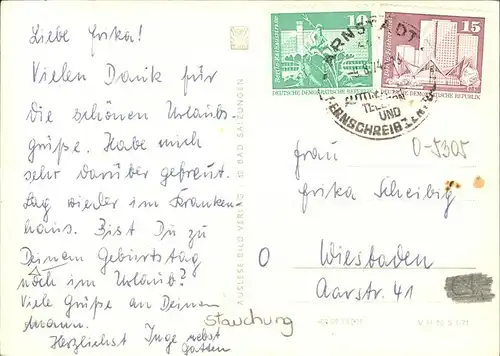 Liebe Erika!
Vielen Dank für
die schönen Urlaubs-
grüße. Habe mich
sehr darüber gefreut.
Lag wieder im Kranken-
haus. Bist Du zu
Deinem Geburtstag
noch im Urlaub?
Viele Grüße an Deinen
Mann.
Herzlichst Inge nebst
Gatten
Stauchung
AUSLESE-BILD-VERLAG
BAD SALZUNGEN
10
DEUTSCHE DEMOKRATISCHE REPUBLIK
15
DEUTSCHE DEMOKRATISCHE REPUBLIK
ARNSTADT
UND
FERNSCHREIB
0-5305
Frau
Erika Scheibig
O Wiesbaden
Aarstr. 41